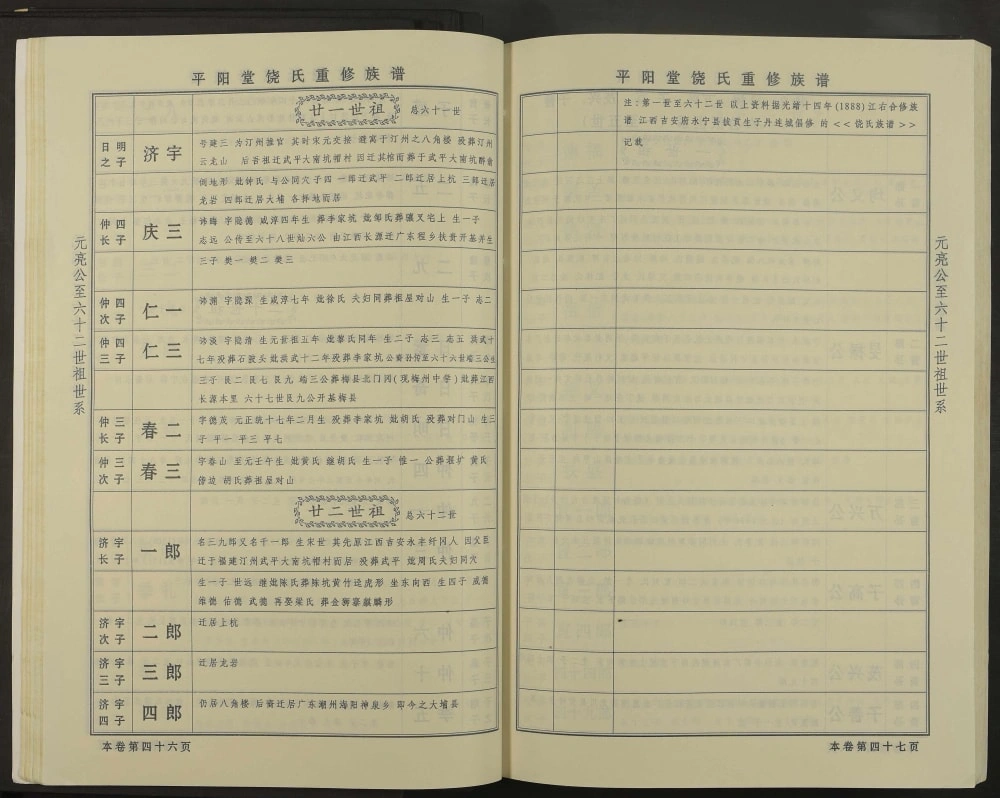 平阳堂饶氏重修族谱
元亮公至六十二世祖世系
廿一世祖 总六十一世
日明之子 济宇 号 三 为汀州推官 其时宋元交接 寓于汀州之八角楼 殁葬汀州
云龙山 后吾祖迁武平大南坑帽村 因迁其棺而葬于武平大南坑醉翁
倒地形 妣钟氏 与公同穴子四 一郎迁武平 二郎迁居上杭 三郎迁居
龙岩 四郎迁居大埔 各择地而居
仲四长子 庆三 讳晦 字隐德 咸淳四年生 葬李家坑 妣邹氏葬 叉宅上 生一子
志远 公传至六十八世 六公 由江西长源迁广东程乡扶贵开基并生
三子 樊一 樊二 樊三
仲四次子 仁一 讳渊 字隐深 生咸淳七年 妣徐氏 夫妇同葬祖屋对山 生一子 志二
仲四三子 仁三 讳淡 字隐清 生元世祖五年 妣黎氏同年 生二子 志三 志五 洪武十
七年殁葬石骏头 妣洪武十二年殁葬李家坑 公裔孙传至六十六世端三公生
三子 艮二 艮七 艮九 端三公葬梅县北门冈(现梅州中学) 妣葬江西
长源本里 六十七世艮九公开基梅县
仲三长子 春二 字德茂 元正统十七年二月生 殁葬李家坑 妣胡氏 殁葬对门山 生三
子 平一 平三 平七
仲三次子 春三 字春山 至元壬午生 妣黄氏 继胡氏 生一子 惟一 公葬 圹 黄氏
傍边 胡氏葬祖屋对山
廿二世祖 总六十二世
济宇长子 一郎 名三九郎又名千一郎 生宋世 其先原江西吉安永丰纤冈人 因父臣
迁于福建汀州武平大南坑帽村而居 殁葬武平 妣周氏夫妇同穴
生一子 世远 继妣陈氏葬陈坑黄竹迳虎形 坐东向西 生四子 成德
维德 佑德 武德 再娶梁氏 葬金狮寨麒麟形
济宇次子 二郎 迁居上杭
济宇三子 三郎 迁居龙岩
济宇四子 四郎 仍居八角楼 后裔迁居广东潮州海阳神泉乡 即今之大埔县
本卷第四十六页
平阳堂饶氏重修族谱
注:第一世至六十二世 以上资料据光绪十四年(1888)江右合修族
谱 江西吉安府永宁县拔贡生子丹连城倡修 的 <<饶氏族谱>>
记载
元亮公至六十二世祖世系
本卷第四十七页